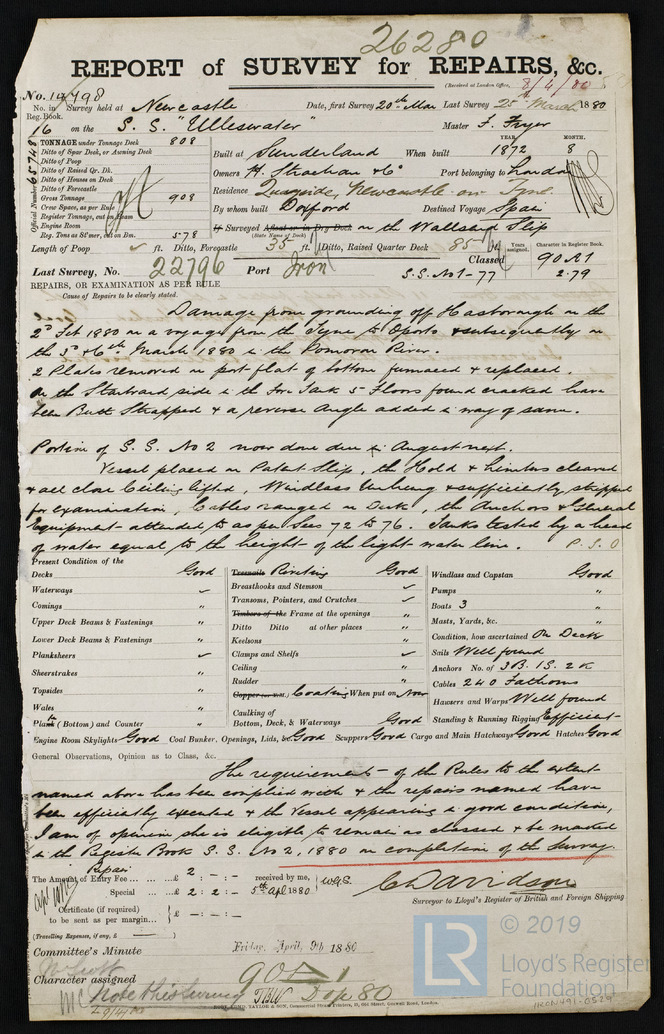 26280
REPORT of SURVEY for REPAIRS, &c.
(Received at London Office, 8/4/80
No. in Survey held at Newcastle Date, first Survey 20th Mar Last Survey 25th March 1880
Reg. Book.
16 on the S.S. "Ulleswater" Master F. Fryer
TONNAGE under Tonnage Deck 808
Ditto of Spar Deck, or Awning Deck
Ditto of Poop
Ditto of Raised Qr. Dk.
Ditto of Houses on Deck
Ditto of Forecastle
Gross Tonnage 908
Crew Space, as per Rule
Register Tonnage, cut on Beam
Engine Room
Reg. Tons as St'mer, cut on Bm. 578
Official Number 65748
YEAR. MONTH.
Built at Sunderland When built 1872 8
Owners H. Strachan & Co Port belonging to London
Residence Quayside, Newcastle on Tyne
By whom built Doxford Destined Voyage Spain
If Surveyed Afloat or in Dry Dock on the Wallsend Slip
(State Name of Dock)
Length of Poop ft. Ditto, Forecastle 35 ft. Ditto, Raised Quarter Deck 85 ft.
Years assigned. Character in Register Book.
Classed 90 A1
Last Survey, No. 22796 Port Iron S.S. No 1-77 2.79
REPAIRS, OR EXAMINATION AS PER RULE
Cause of Repairs to be clearly stated.
Damage from grounding off Hasborough on the
2d Feb 1880 on a voyage from the Tyne to Oporto & subsequently on
the 3d & 6th March 1880 in the Pomoron River.
2 Plates removed on port flat of bottom furnaced & replaced.
On the Starboard side in the Fore Tank 5 Floors found cracked have
been Butt Strapped & a reverse Angle added in way of same.
Portion of S.S. No 2 now done due in August next.
Vessel placed on Patent Slip, the Hold & Limbers cleared
& all close Ceiling lifted, Windlass Unhung & sufficiently stripped
for examination, Cables ranged on Deck, the Anchors & General
Equipment attended to as per Secs 72 to 76. Tanks tested by a head
of water equal to the height of the light water line. P.S.O
Present Condition of the
Decks Good
Waterways ✓
Comings "
Upper Deck Beams & Fastenings "
Lower Deck Beams & Fastenings "
Planksheers ✓
Sheerstrakes "
Topsides "
Wales "
Plank (Bottom) and Counter "
Treenails Riveting Good
Breasthooks and Stemson ✓
Transoms, Pointers, and Crutches ✓
Timbers of the Frame at the openings "
Ditto Ditto at other places "
Keelsons "
Clamps and Shelfs ✓
Ceiling "
Rudder "
Copper (or Y.M.) Coating When put on Now
Caulking of
Bottom, Deck, & Waterways Good
Windlass and Capstan Good
Pumps "
Boats 3 "
Masts, Yards, &c. "
Condition, how ascertained On Deck
Sails Well found
Anchors No. of 3B. 1S. 2K
Cables 240 Fathoms
Hawsers and Warps Well found
Standing & Running Rigging Efficient
Engine Room Skylights Good Coal Bunker, Openings, Lids, &c Good Scuppers Good Cargo and Main Hatchways Good Hatches Good
General Observations, Opinion as to Class, &c.
The requirements of the Rules to the extent
named above has been complied with & the repairs named have
been efficiently executed & the Vessel appearing in good condition,
I am of opinion she is eligible to remain as classed & be marked
in the Register Book S.S. No 2, 1880 on completion of the Survey.
Repair
The Amount of Entry Fee ... ... £ 2 : - : - received by me,
Special ... ... £ 2 : 2 : - 5th Apl 1880 W.G.S.
Certificate (if required)
to be sent as per margin... £ - : - : -
(Travelling Expenses, if any, £
C Davidson
Surveyor to Lloyd's Register of British and Foreign Shipping
Committee's Minute Friday, April 9th 1880
Character assigned 90 A 1
Note this survey
© 2019
LR
Lloyd's Register
Foundation